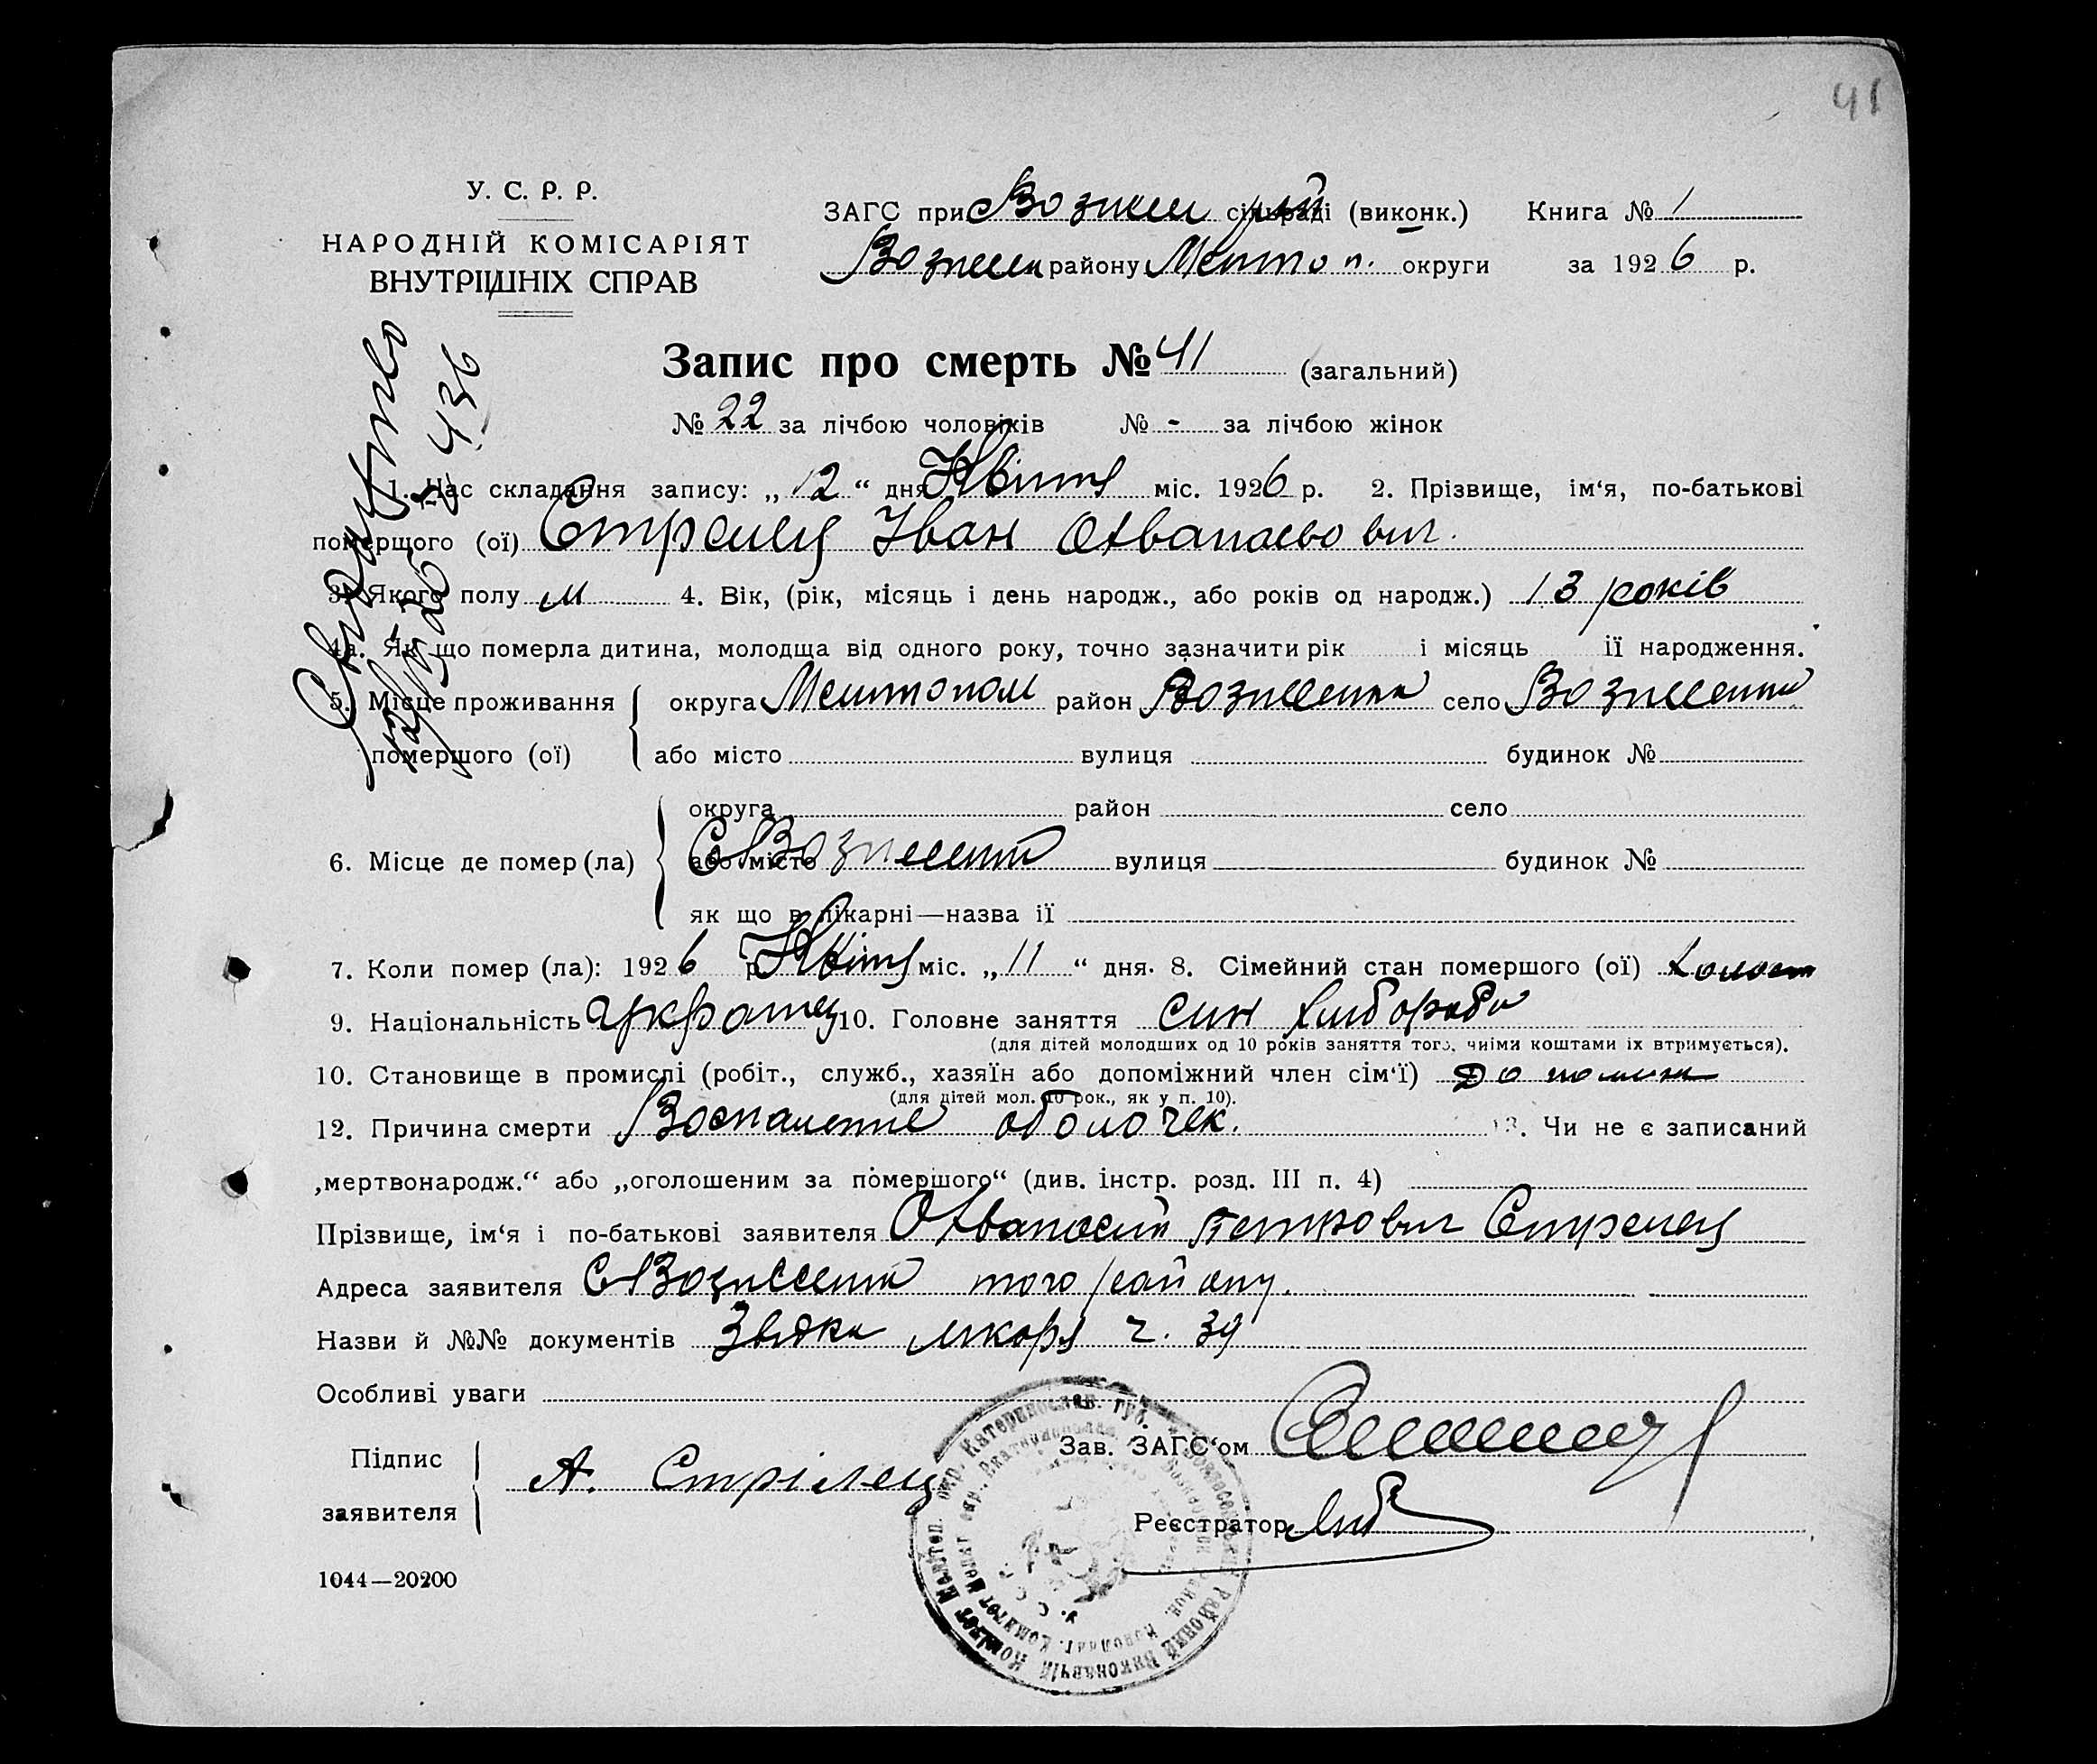 41
У. С. Р. Р.
НАРОДНІЙ КОМІСАРІЯТ
ВНУТРІШНІХ СПРАВ
ЗАГС при Вознесен рай сільраді (виконк.) Книга № 1
Вознесен району Мелітоп. округи за 1926 р.
Запис про смерть № 41 (загальний)
№ 22 за лічбою чоловіків № - за лічбою жінок
1. Час складання запису: „12“ дня Квітня міс. 1926 р. 2. Прізвище, ім‘я, по-батькові
померщого (ої) Стрелец Іван Афанасьевич.
3. Якого полу М 4. Вік, (рік, місяць і день народж., або років од народж.) 13 років
4а. Як що померла дитина, молодща від одного року, точно зазначити рік і місяць її народження.
5. Місце проживання округа Мелітопол район Вознесенка село Вознесенка
помершого (ої) або місто вулиця будинок №
округа район село
6. Місце де помер (ла) або місто С Вознесенка вулиця будинок №
як що в лікарні—назва її
7. Коли помер (ла): 1926 р Квітня міс. „11“ дня. 8. Сімейний стан померщого (ої) холост
9. Національність Українец 10. Головне заняття син хлібороба
(для дітей молодших од 10 років заняття того, чиїми коштами їх втримується).
10. Становище в промислі (робіт., служб., хазяїн або допоміжний член сім‘ї)
(для дітей мол. 10 рок., як у п. 10).
12. Причина смерти Воспаление оболочек. 13. Чи не є записаний
„мертвонародж.“ або „оголошеним за помершого“ (див. інстр. розд. III п. 4)
Прізвище, ім‘я і по-батькові заявителя Афанасий Петрович Стрелец
Адреса заявителя С Вознесенка того району.
Назви й №№ документів Звідка лікаря ч. 39
Особливі уваги
Зав. ЗАГС‘ом
Підпис
заявителя А. Стрілец
Реєстратор
1044—20200